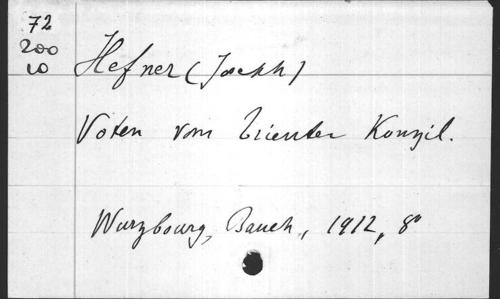 72
200
10
Hefner (Joseph)
Voten vom Trienter Konzil.
Wurzbourg, Bauch, 1912, 8°